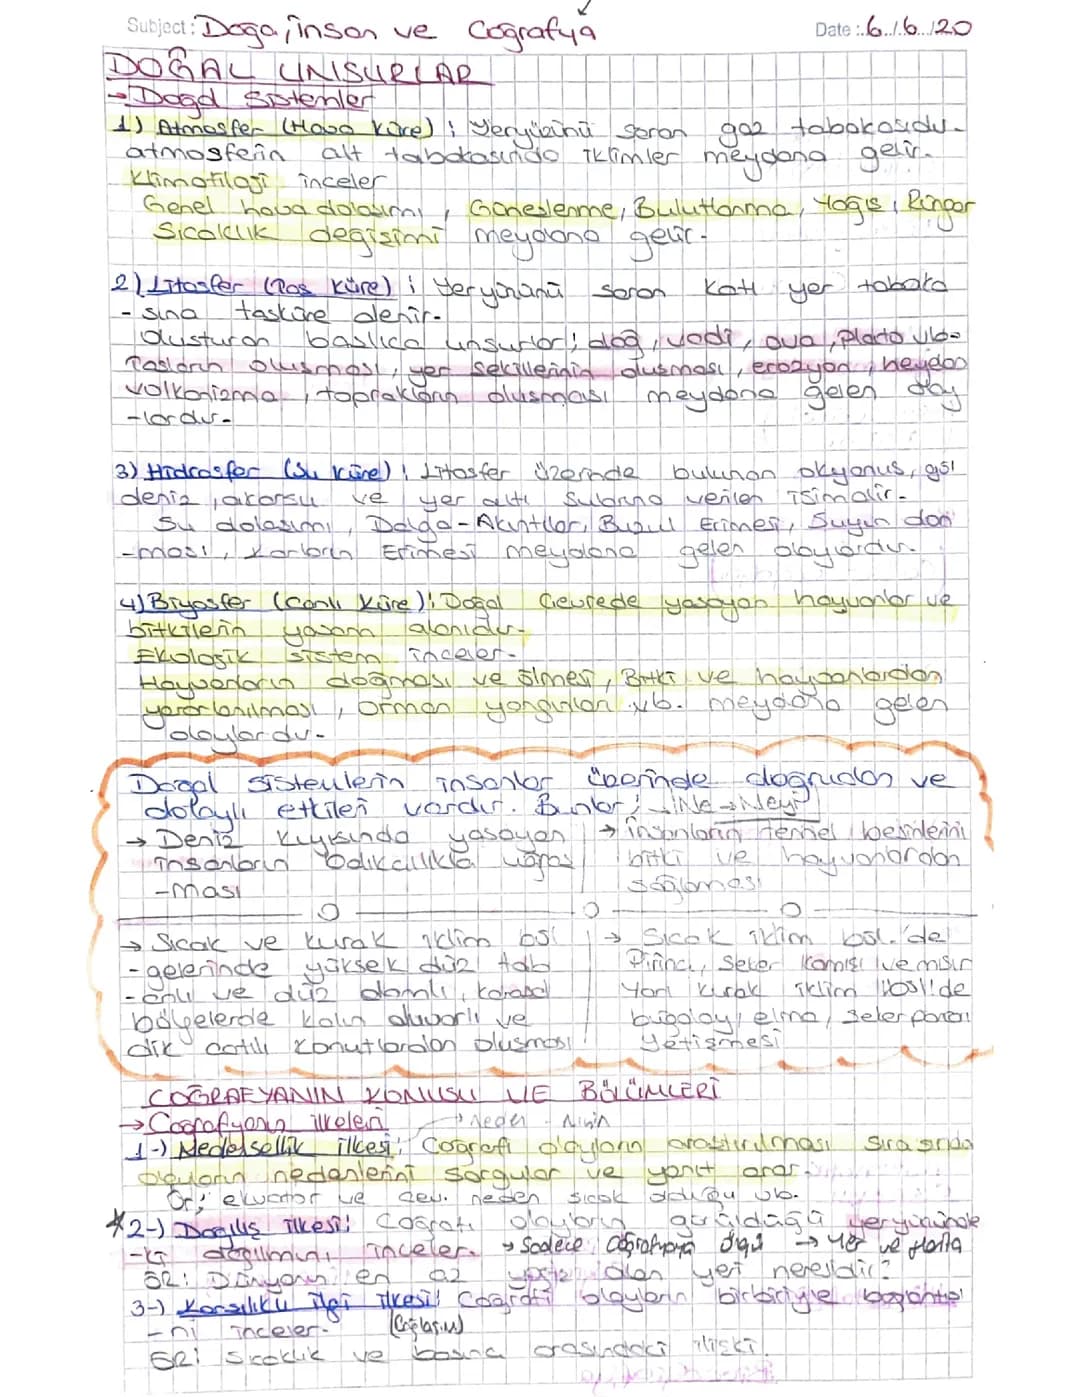 Subject: Doğa, insan ve Coğrafya Date: 6./.6../20
DOĞAL UNSURLAR
→ Doğal Sistemler
1) Atmosfer (Hava Küre) : Yeryüzünü saran gaz tabakasıdır.
atmosferin alt tabakasında iklimler meydana gelir.
Klimatiloji inceler
Genel hava dolaşımı, Güneşlenme, Bulutlanma, Yağış, Rüzgar
Sıcaklık değişimi meydana gelir.
2) Litosfer (Taş Küre) : Yeryüzünü saran katı yer tabaka
-sına taşküre denir.
Oluşturan başlıca unsurlar; dağ, vadi, ova, plato vb.
Taşların oluşması, yer şekillerinin oluşması, erozyon, heyelan
volkanizma, toprakların oluşması meydana gelen olay
-lardır.
3) Hidrosfer (Su Küre) : Litosfer üzerinde bulunan okyanus, göl
deniz, akarsu ve yer altı sularına verilen isimdir.
Su dolaşımı, Dalga-Akıntılar, Buzul Erimesi, Suyun don
-ması, Karların Erimesi meydana gelen olaylardır.
4) Biyosfer (Canlı Küre) : Doğal Çevrede yaşayan hayvanlar ve
bitkilerin yaşam alanıdır.
Ekolojik sistem inceler.
Hayvanların doğması ve ölmesi, Bitki ve hayvanlardan
yararlanılması, Orman yangınları vb. meydana gelen
olaylardır.
Doğal sistemlerin insanlar üzerinde doğrudan ve
dolaylı etkileri vardır. Bunlar;
→ Deniz kıyısında yaşayan
insanların balıkcılıkla uğraş
-ması
→ insanların temel besinlerini
bitki ve hayvanlardan
sağlaması
→ Sıcak ve kurak iklim böl
-gelerinde yüksek düz tab
-anlı ve düz damlı, karasal
bölgelerde kalın duvarlı ve
dik çatılı konutlardan oluşması
→ Sıcak iklim böl. de
Pirinç, Şeker kamışı ve mısır
Yarı kurak iklim böl. de
buğday, elma, şeker pancarı
yetişmesi
COĞRAFYANIN KONUSU VE BÖLÜMLERİ
→ Coğrafyanın ilkeleri → Neden - Niçin
1-) Nedelsellik ilkesi: Coğrafi olayların araştırılması sırasında
olayların nedenlerini sorgular ve yanıt arar.
Ör; ekvator ve çev. neden sıcak olduğu vb.
*2-) Dağılış ilkesi: Coğrafi olayların görüldüğü yeryüzünde
-ki dağılımını inceler. → Sadece coğrafyaya özgü → Yer ve Harita
ÖR: Dünyanın en az yağış alan yeri neresidir?
3-) Karşılıklı ilgi ilkesi: Coğrafi olayların birbiriyle bağlantısı
-nı inceler.
ÖR: Sıcaklık ve basınç arasındaki ilişki.